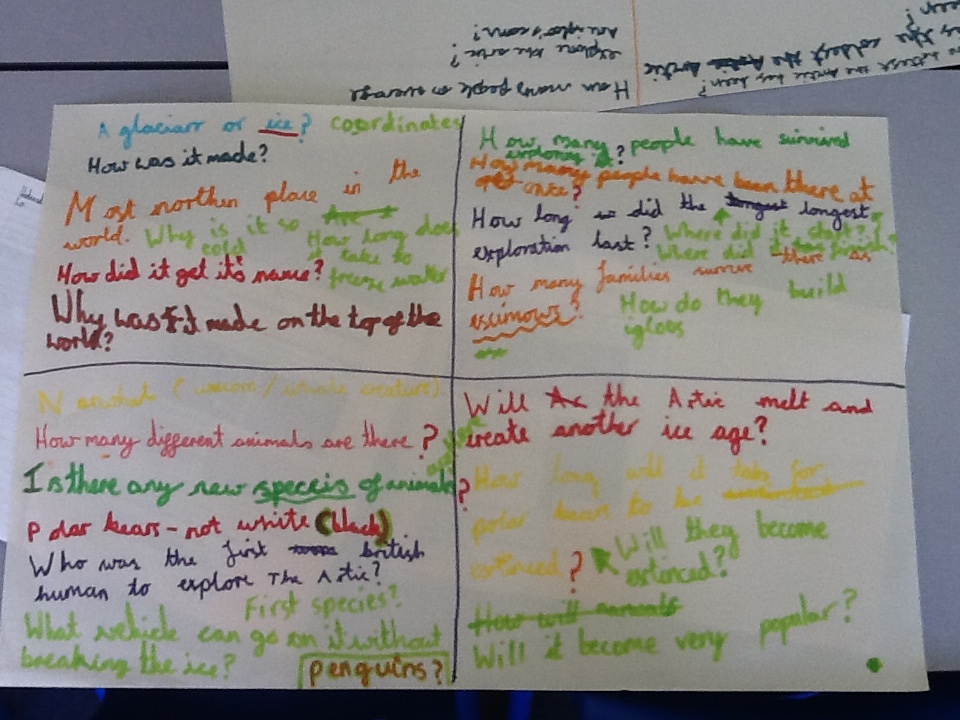 How many people on average
explore the artic?
the coldest the Artic
the Artic has been?
A glaciarr or ice? coordinates
How was it made?
Most northen place in the
world. Why is it so cold
How long does
it take to
freeze water
How did it get it's name?
Why was it made on the top of the
world?
How many people have survived
exploring it?
How many people have been there at
once?
How long did the longest longest
exploration last? Where did it start?
Where did it finish?
How many families survive there as
escimows?
How do they build
igloos
Narwhal (unicorn / whale creature)
How many different animals are there?
Is there any new speceis of animals?
Polar bears - not white (black)
Who was the first british
human to explore The Artic?
First species?
What vehicle can go on it without
breaking the ice?
penguins?
Will the Artic melt and
create another ice age?
How long will it take for
polar bears to be
extinced?
Will they become
extinced?
How will animals
Will it become very popular?